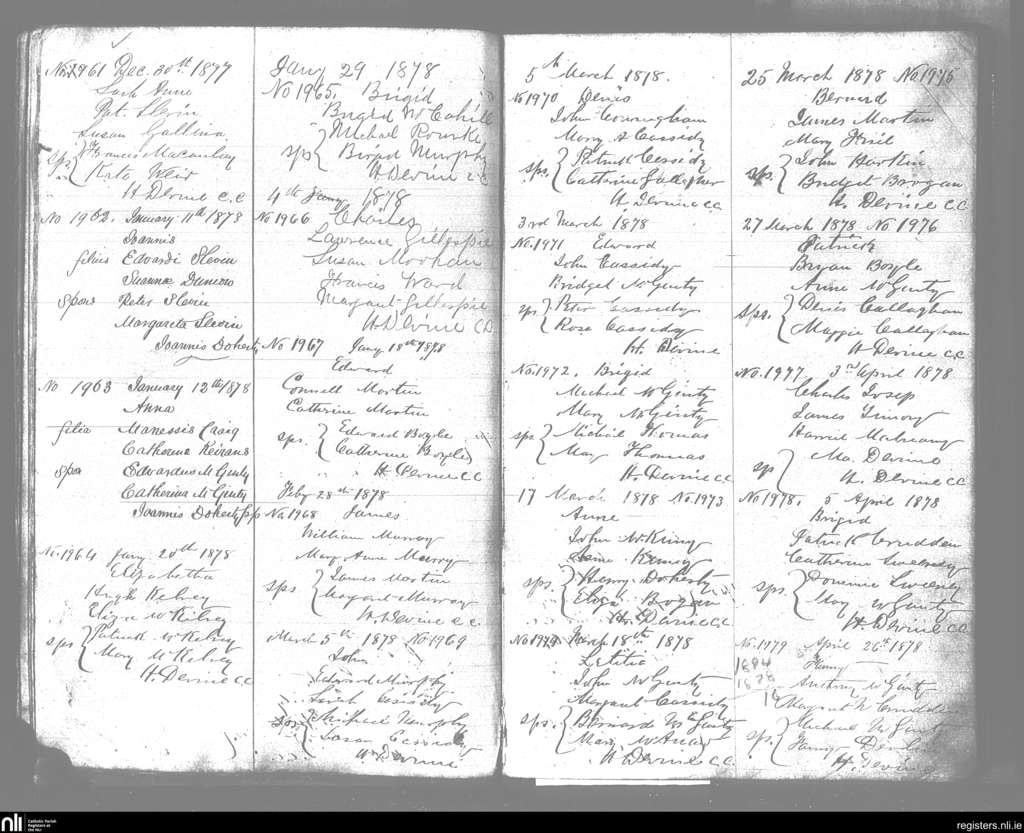 No. 1961 Dec. 30th 1877
Sarh Anne
Pat. Slevin
Susan Gallina
sps { Francis Macaulay
Kate Weir
H Devine C.C
No 1962. January 11th 1878
Joannis
filius Edwardi Slevin
Suanna
Spon Peter Slevin
Margareta Slevin
Joannis Doherty
No 1963 January 12th 1878
Anna
filia Manessis Craig
Catherina Keirans
Spon Edwardus McGinty
Catherina McGinty
Joannis Doherty
No. 1964 Jany. 20th 1878
Elizabetha
Hugh Kelvey
Eliza McKelvey
sps { Patrick McKelvey
Mary McKelvey
H. Devine CC
Jany 29 1878
No 1965. Brigid
Brigid McCahill
sps { Michael Rourke
Brigid Murphy
H Devine C.C
4th Jany 1878
No 1966 Charles
Lawrence Gillespie
Susan Moohan
Francis Ward
Margaret Gillespie
H Devine C.C
No 1967 Jany. 18th 1878
Edward
Connell Martin
Catherine Martin
sps. { Edward Boyle
Catherine Boyle
H. Devine CC
Feby 28th 1878
No. 1968 James
William Murray
Mary Anne Murray
sps { James Martin
Margaret Murray
H. Devine C.C.
March 5th 1878 No 1969
John
Edward Murphy
Sarah Cassidy
sps. { Michael Murphy
Susan
H Devine
5th March 1878.
No 1970 Denis
John Cunningham
Mary A Cassidy
sps. { Patrick Cassidy
Catherine Gallagher
H Devine C.C.
3rd March 1878
No. 1971 Edward
John Cassidy
Bridget McGinty
sps { Peter Cassedy
Rose Cassedy
H. Devine
No. 1972. Brigid
Michael McGinty
Mary McGinty
sps { Michael Thomas
Mary Thomas
H. Devine CC
17 March 1878 No. 1973
Anne
John McKinny
Kenny
sps. { Henry Doherty
Eliza Brogan
H. Devine C.C
No 1974 March 18th 1878
Letitia
John McGinty
Margaret Cassidy
sps. { Bernard McGinty
Mary
H Devine C.C.
25 March 1878 No 1975
Bernard
James Martin
Mary Friil
sps. { John Harkin
Bridget Brogan
H. Devine C.C
27 March 1878 No 1976
Patrick
Bryan Boyle
Anne McGinty
sps. { Denis Callaghan
Maggie Callaghan
H Devine C.C
No. 1977 3rd April 1878
Charles Josep
James Timony
Harriet
sp { Ma. Devine
H. Devine CC
No 1978. 5 April 1878
Brigid
Patrick Crudden
Catherine Sweeney
sps. { Dominic Sweeny
May McGinty
H. Devine C.C
No. 1979 April 26th 1878
1694 Fanny
1678 Anthony McGinty
Margaret McCrudden
sps. { Michael McGinty
Fanny
H. Devine
nli Catholic Parish Registers at the NLI
registers.nli.ie